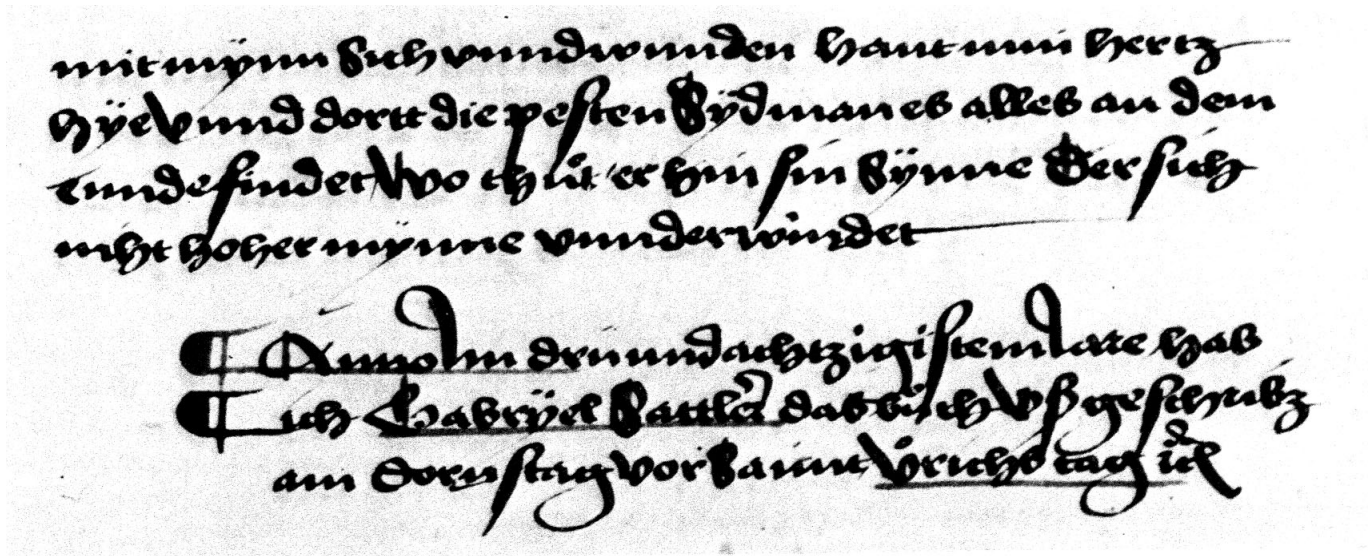 mit mynn Sich vnndwunden hant min hertz
hÿe Vnnd dortt die pesten Sÿdman es alles an dem
ennde findet Wo thuͦt er hin sin Sÿnne Der sich
niht hoher mynne vnnderwindet
¶ Anno Im drü unnd achtzigistem Iare hab
¶ ich Gabrÿel Sattler das buͦch Vß geschribz
am dornstag vor Sannt Vͦrichs tag